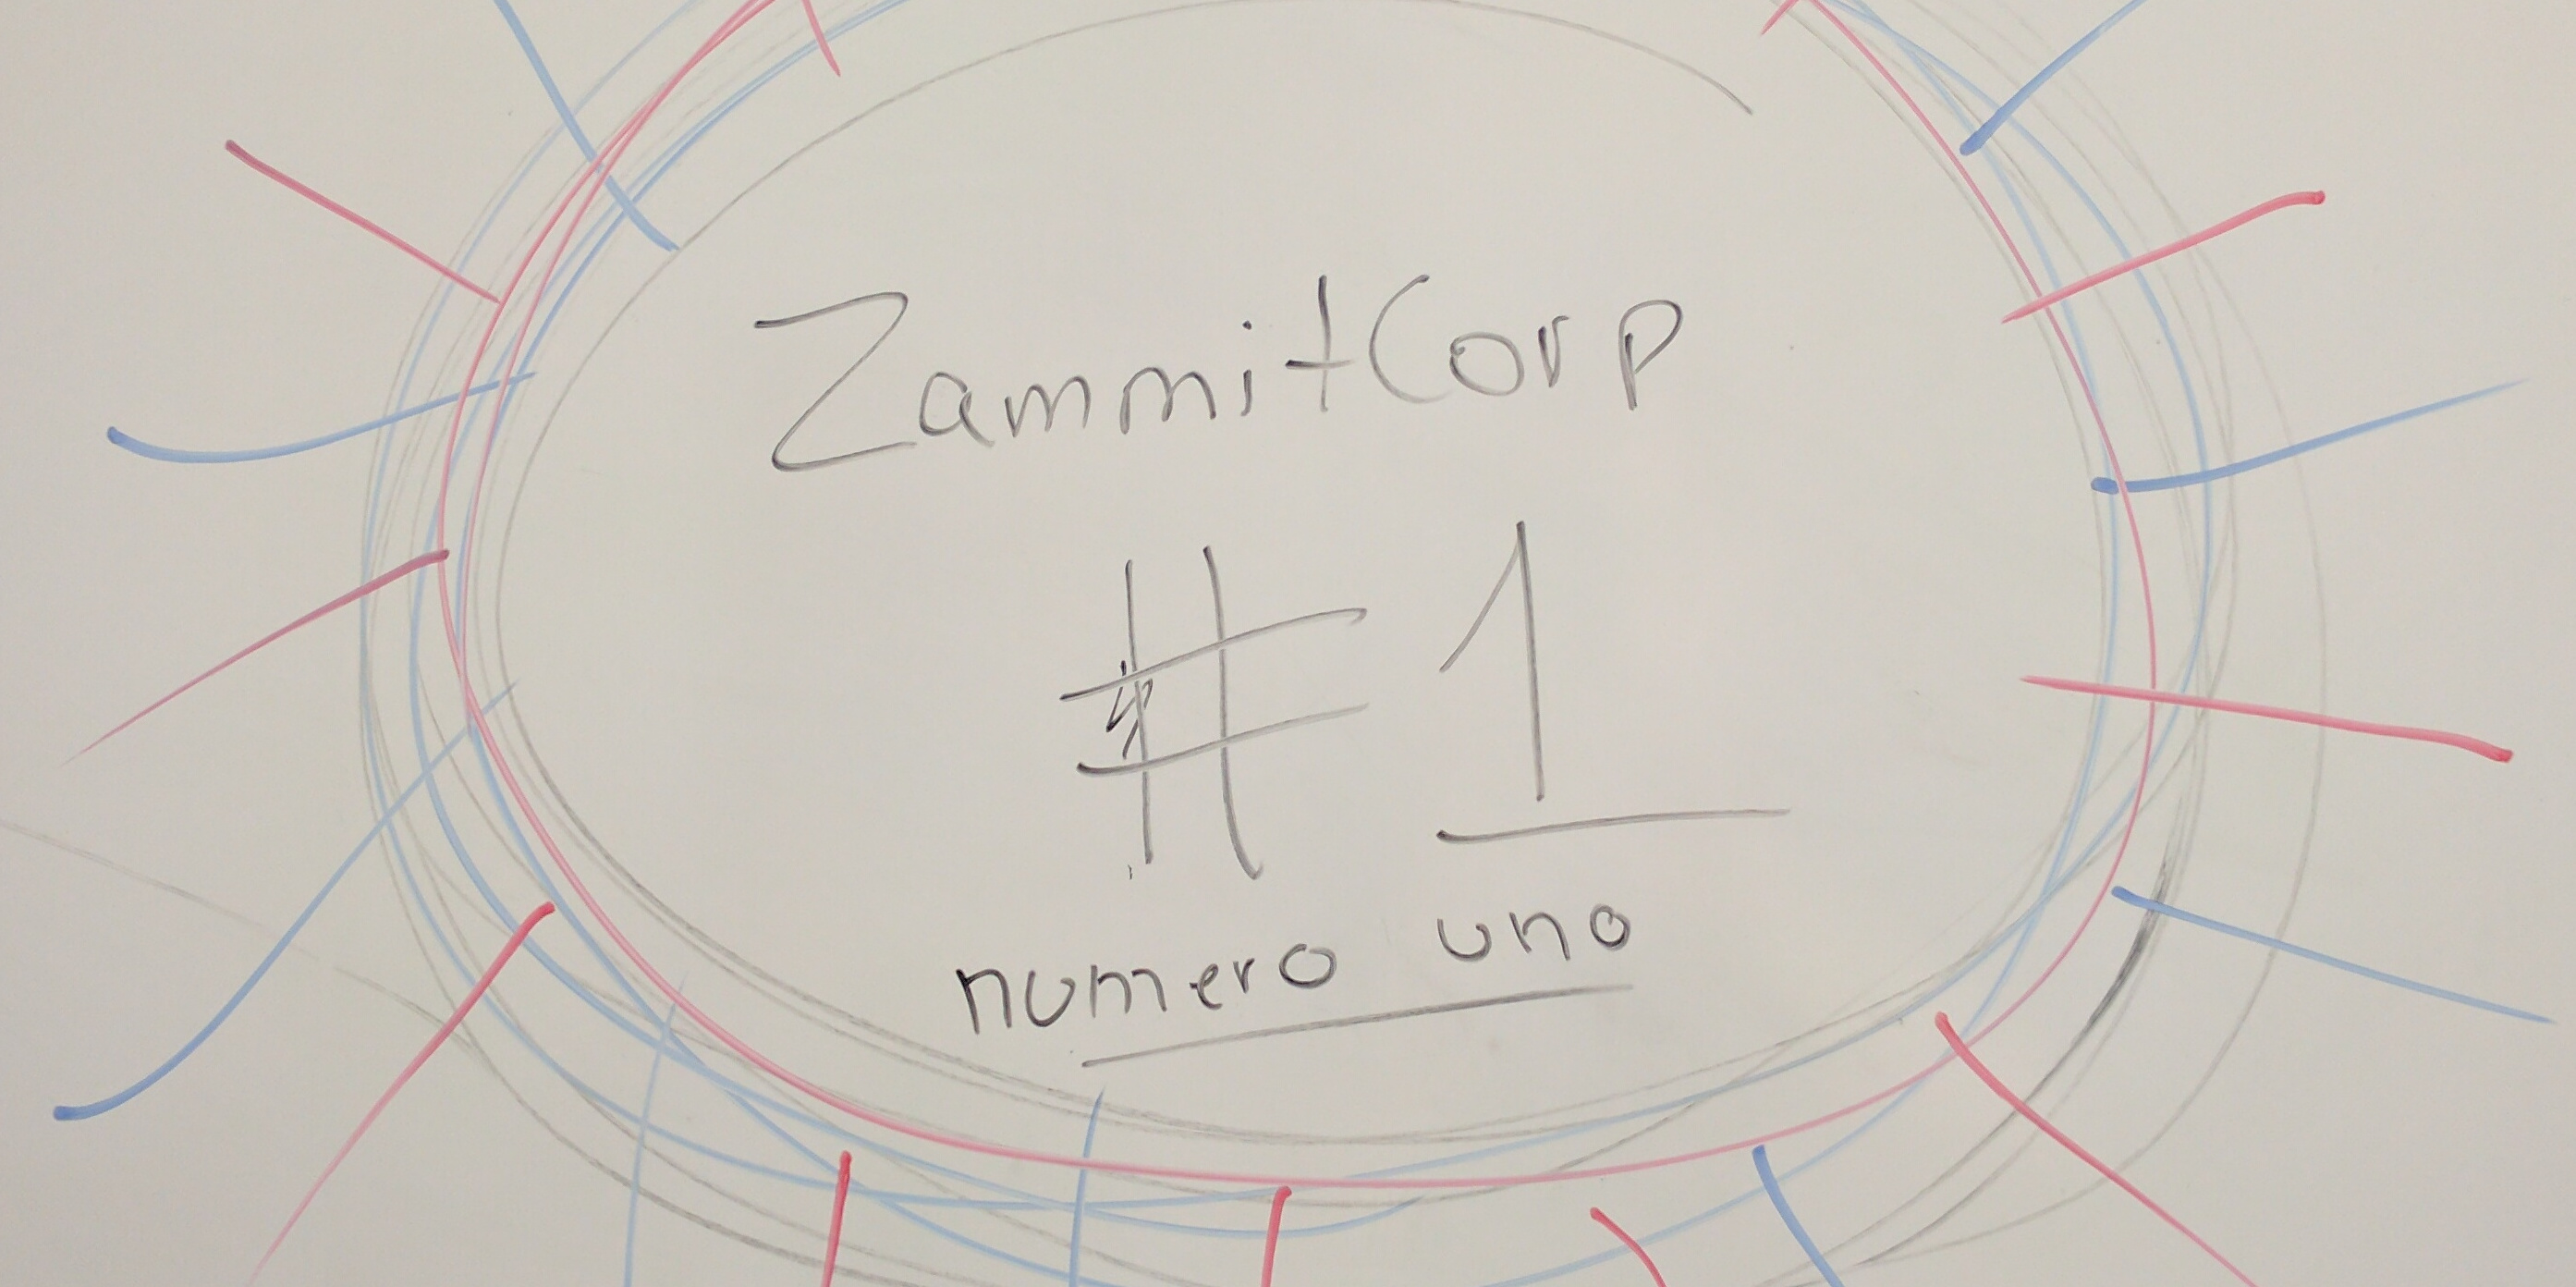 ZammitCorp
# 1
numero uno